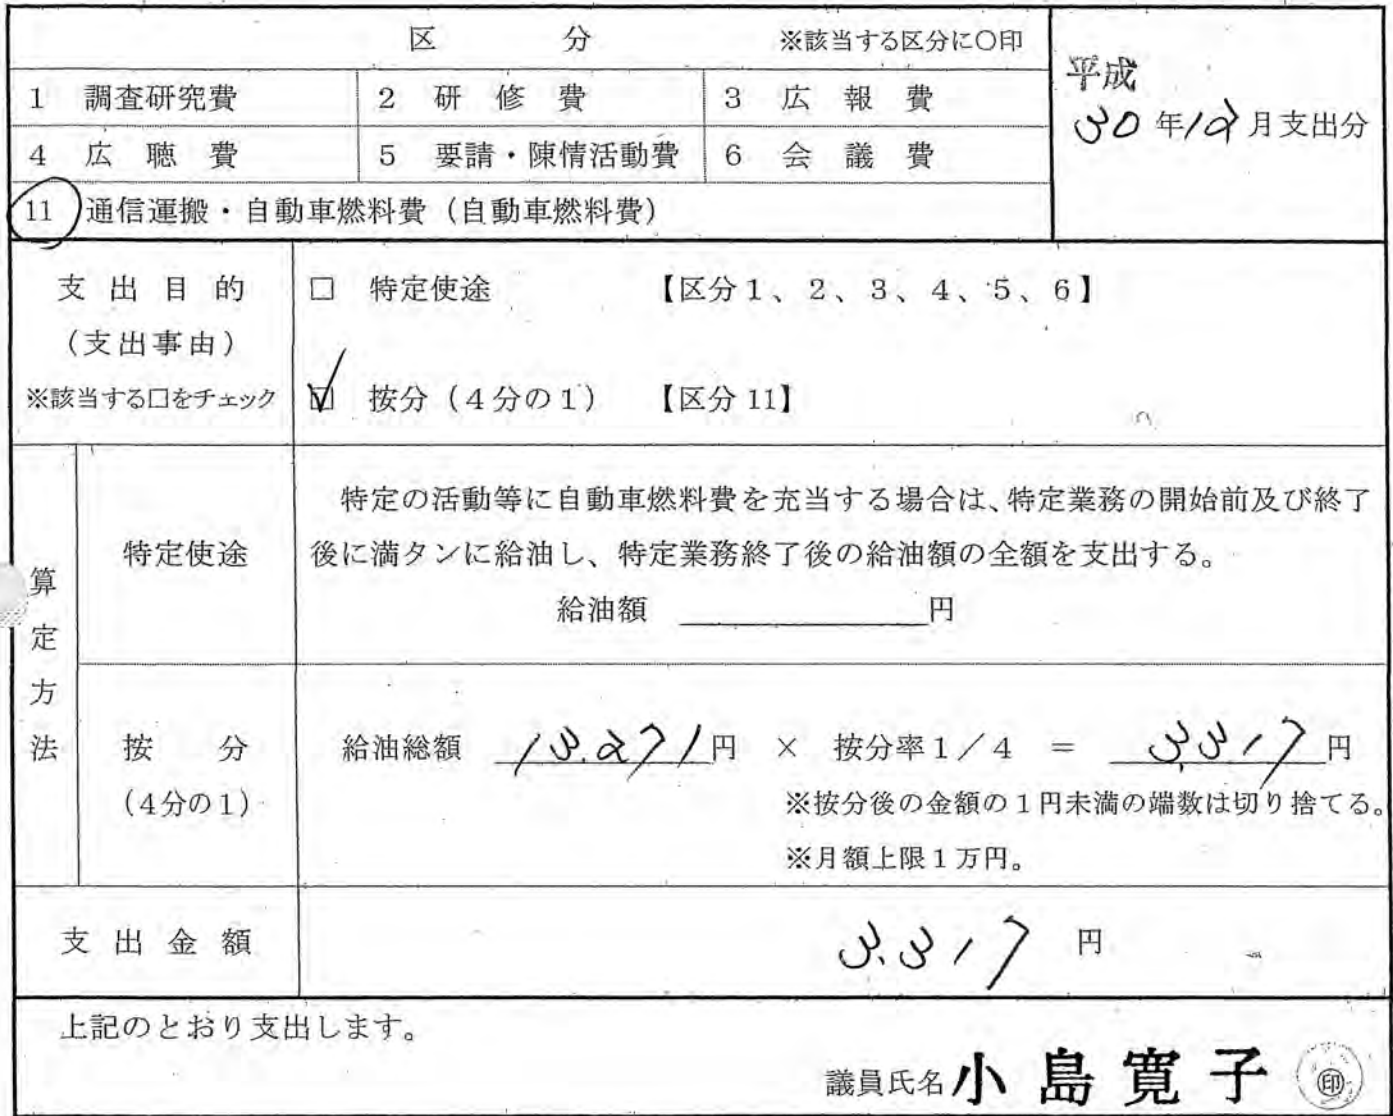 区 分 ※該当する区分に○印
平成
30年12月支出分
1 調査研究費 2 研修費 3 広報費
4 広聴費 5 要請・陳情活動費 6 会議費
11 通信運搬・自動車燃料費(自動車燃料費)
支出目的
(支出事由)
※該当する□をチェック
□ 特定使途 【区分1、2、3、4、5、6】
☑ 按分(4分の1) 【区分11】
算定方法
特定使途
特定の活動等に自動車燃料費を充当する場合は、特定業務の開始前及び終了
後に満タンに給油し、特定業務終了後の給油額の全額を支出する。
給油額 円
按分
(4分の1)
給油総額 13.271円 × 按分率1/4 = 3,317円
※按分後の金額の1円未満の端数は切り捨てる。
※月額上限1万円。
支出金額 3.317 円
上記のとおり支出します。
議員氏名 小島寛子 ㊞